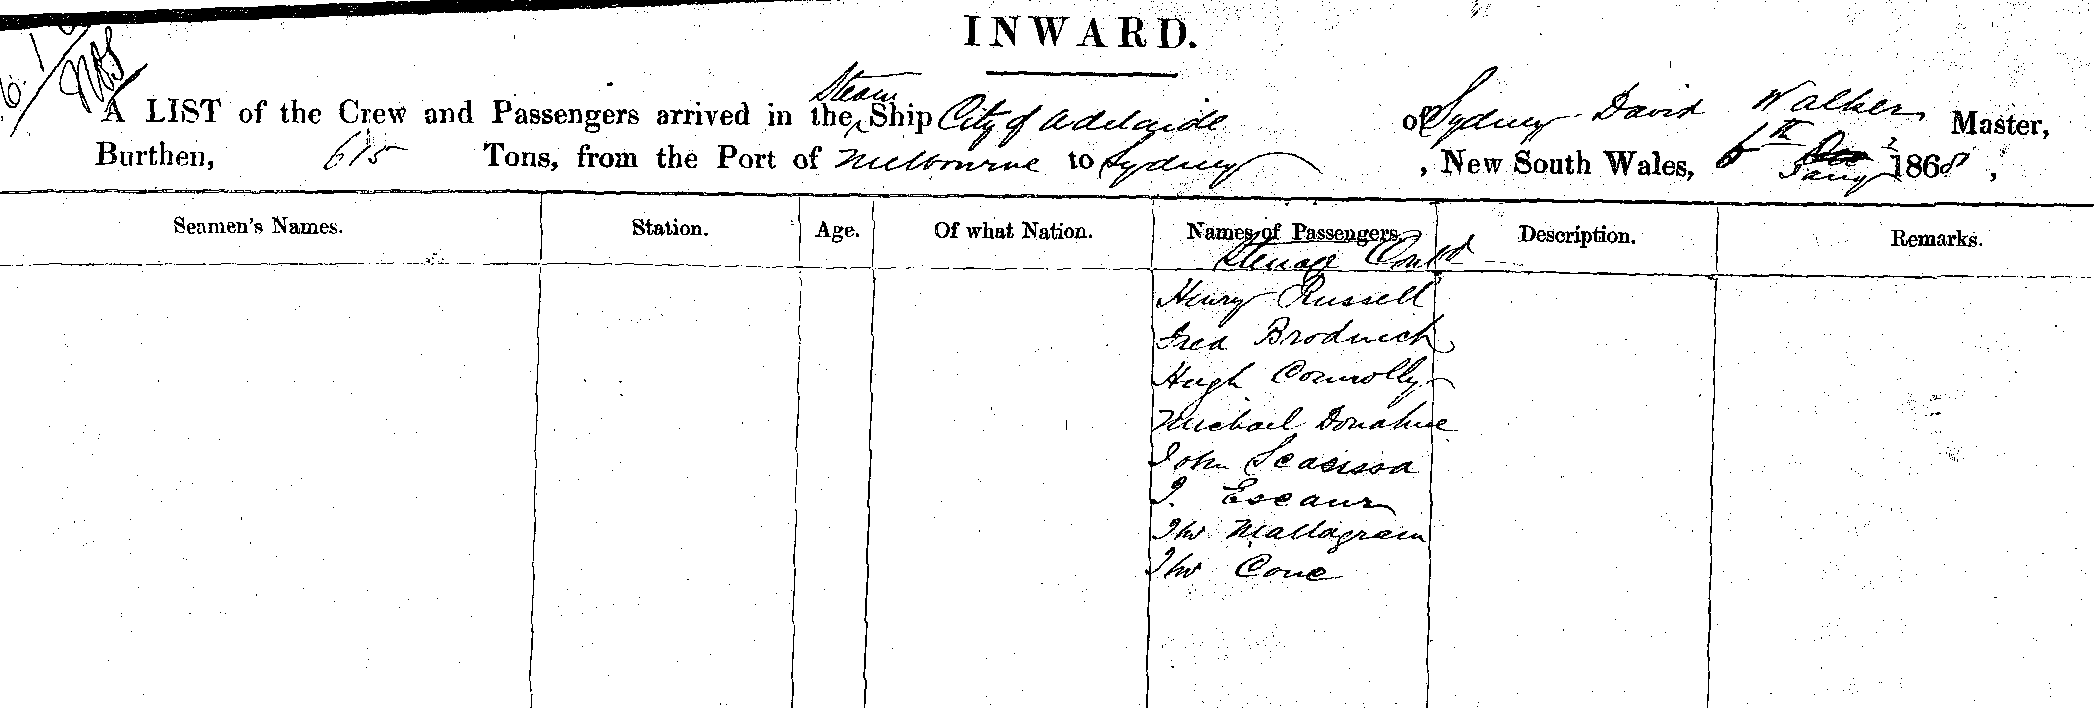 INWARD.
A LIST of the Crew and Passengers arrived in the Steam Ship City of Adelaide of Sydney David Walker, Master,
Burthen, 615 Tons, from the Port of Melbourne to Sydney, New South Wales, 6th Jany 1868,
Seamen's Names. Station. Age. Of what Nation. Names of Passengers. Description. Remarks.
Steerage Contd
Henry Russell
Fred
Hugh Connolly
Michael Donahue
John
J.
Thos
Thos Cone